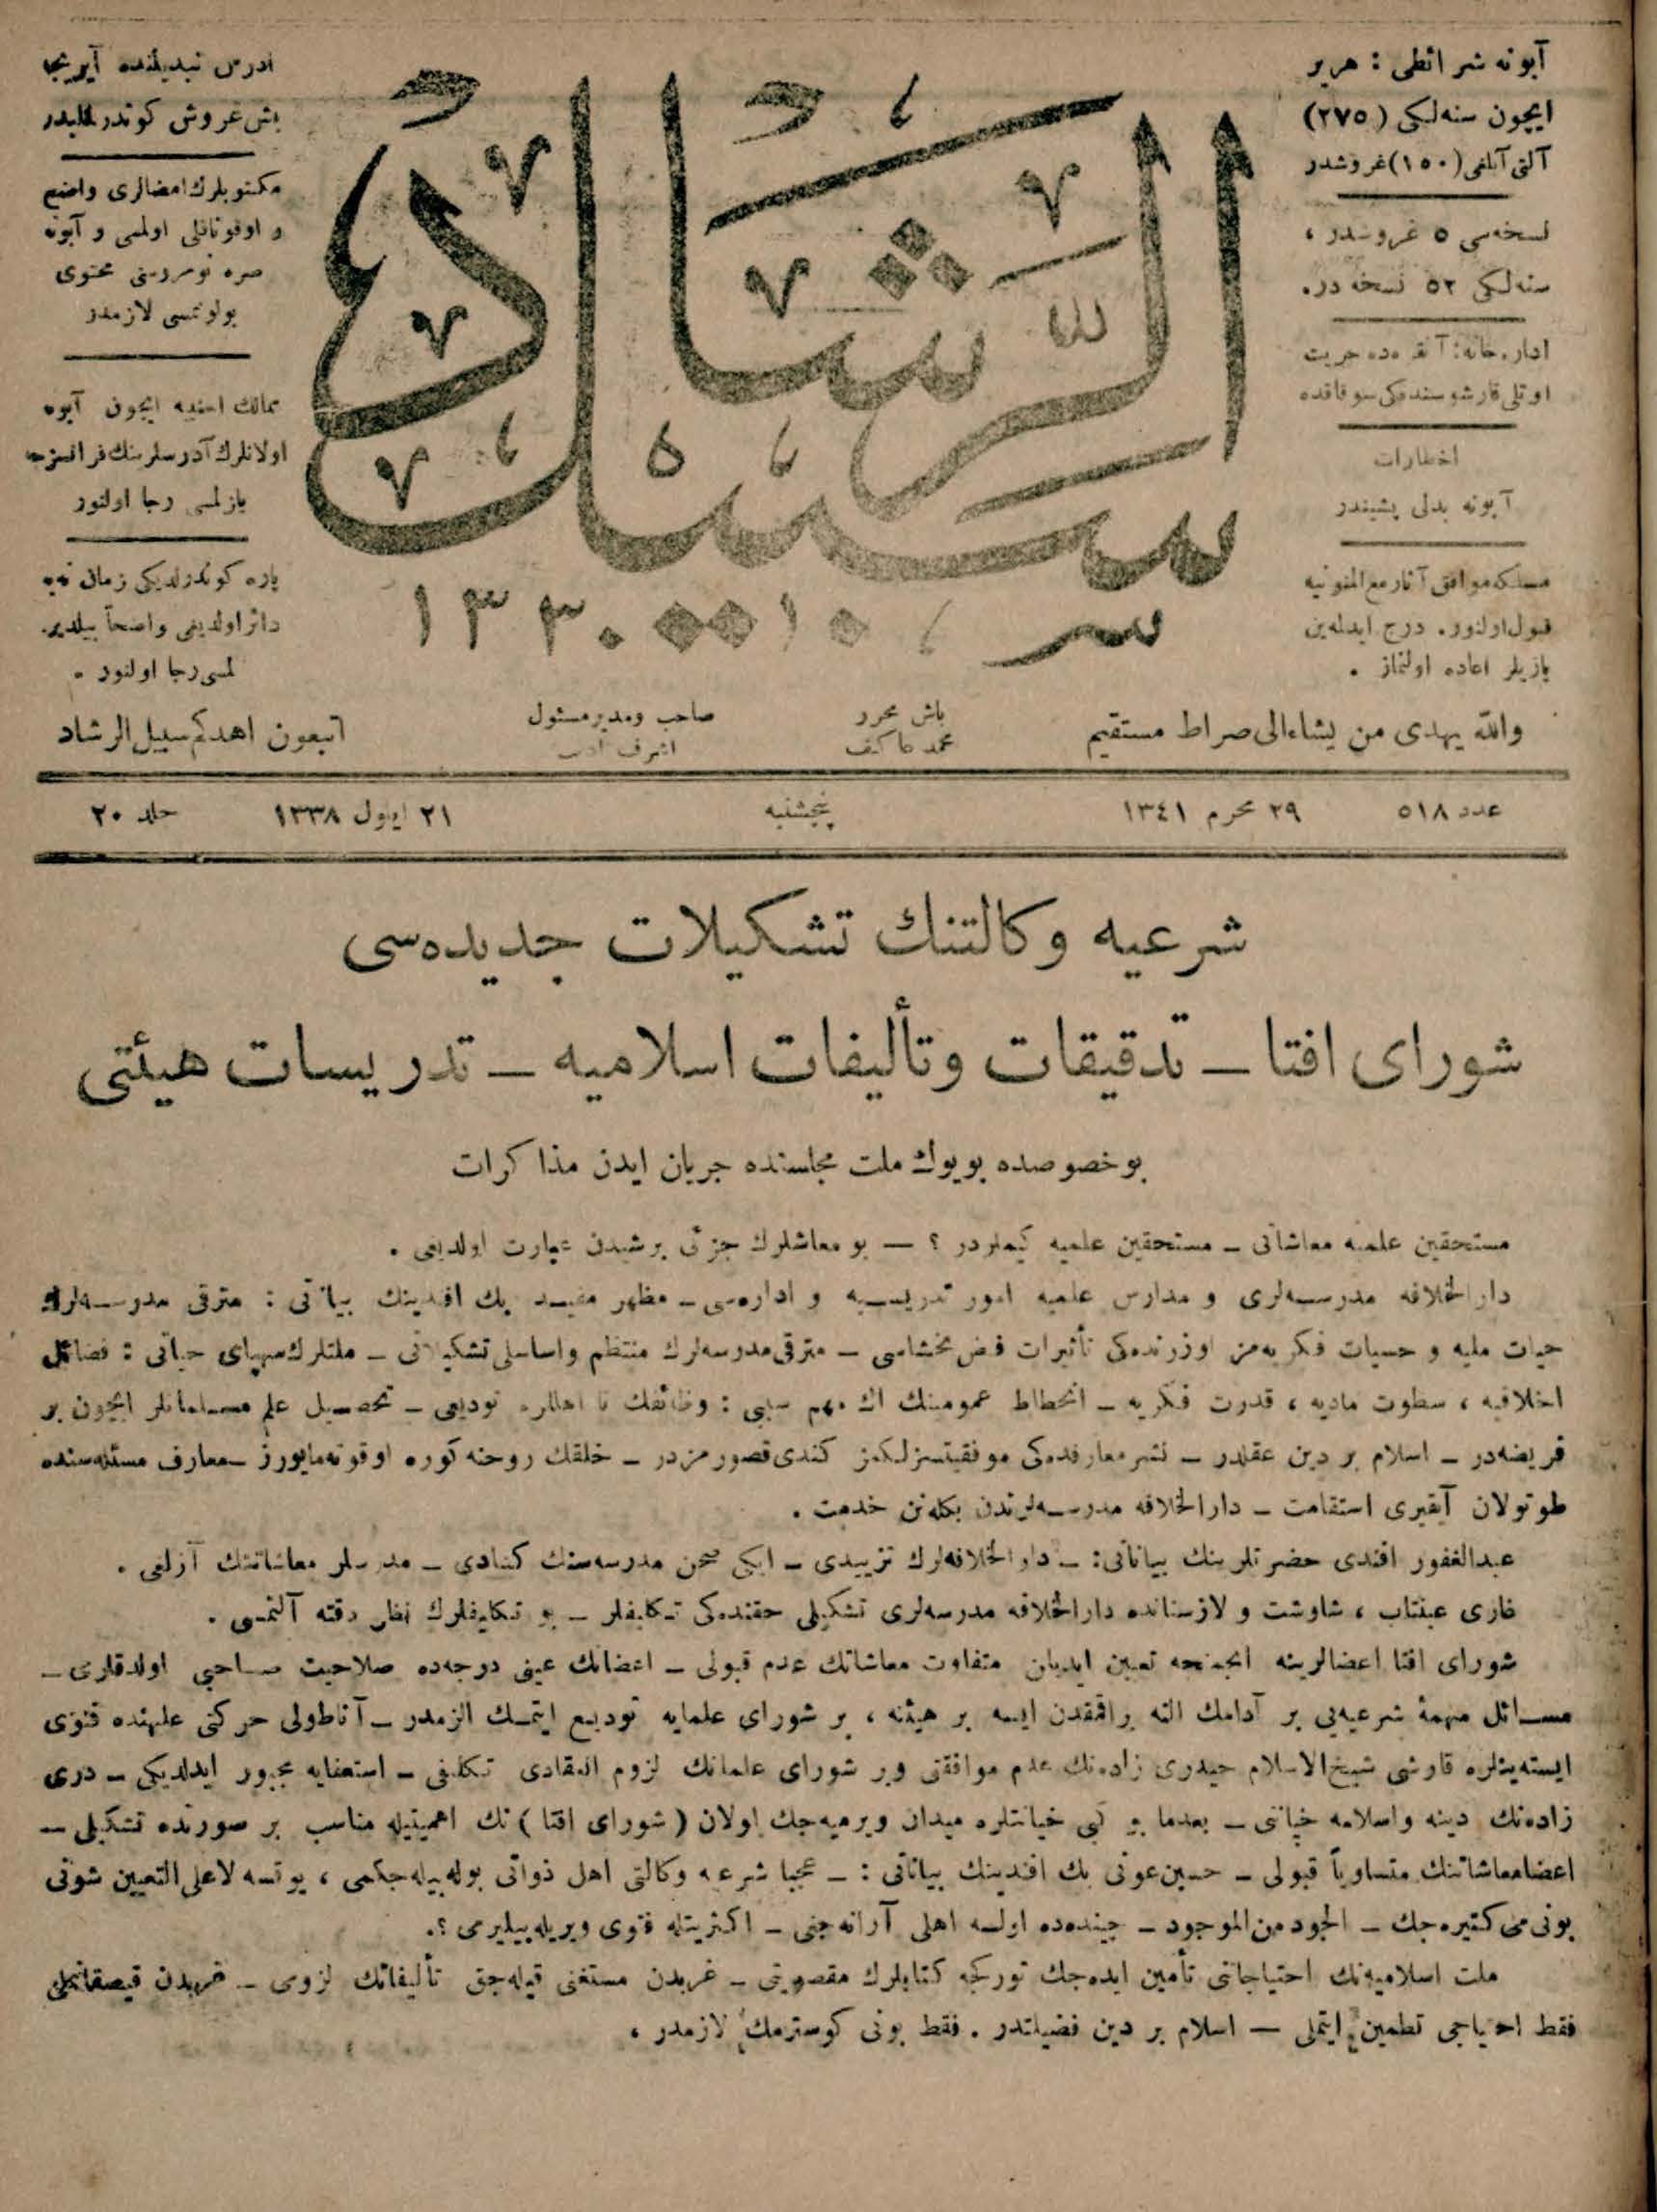 آبونه شرائطی : هر یر
ایچون سنه‌لکی (۲۷۵)
آلتی آیلغی (۱۵۰) غروشدر
نسخه‌سی ۵ غروشدر ،
سنه‌لکی ۵۲ نسخه در .
اداره‌خانه : آنقره‌ده حریت
اوتلی قارشوسنده‌کی سوقاقده
اخطارات
آبونه بدلی پشیندر
مسلکه موافق آثار مع الممنونیه
قبول اولنور . درج ایدلمه‌ین
یازیلر اعاده اولنماز .
سبیل الرشاد
۱۳۳۰
آدرس تبدیلنده آیریجا
بش غروش کوندرلملیدر
مکتوبلرك امضالری واضح
و اوقوناقلی اولمسی و آبونه
صره نومروسنی محتوی
بولونمسی لازمدر
ممالك اجنبیه ایچون آبونه
اولانلرك آدرسلرینك فرانسزجه
یازلمسی رجا اولنور
پاره کوندرلدیکی زمان نه‌یه
دائر اولدیغی واضحاً بیلدیر
لمسی رجا اولنور .
والله یهدی من یشاء الی صراط مستقیم
باش محرر
محمد عاکف
صاحب و مدیر مسئول
اشرف ادیب
اتبعون اهدکم سبیل الرشاد
عدد ۵۱۸
۲۹ محرم ۱۳٤۱
پنجشنبه
۲۱ ایلول ۱۳۳۸
جلد ۲۰
شرعیه وکالتنك تشکیلات جدیده‌سی
شورای افتا ــ تدقیقات وتألیفات اسلامیه ــ تدریسات هیئتی
بو خصوصده بویوك ملت مجلسنده جریان ایدن مذاکرات
مستحقین علمیه معاشاتی ــ مستحقین علمیه کیملردر ؟ ــ بو معاشلرك جزئی برشیدن عبارت اولدیغی .
دارالخلافه مدرسه‌لری و مدارس علمیه امور تدریسیه و اداره‌سی ــ مظهر مفید بك افندینك بیاناتی : مترقی مدرسه‌لرك
حیات ملیه و حسیات فکریه‌مز اوزرنده‌کی تأثیرات فیض بخشاسی ــ مترقی مدرسه‌لرك منتظم واساسلی تشکیلاتی ــ ملتلرك سیمای حیاتی : فضائل
اخلاقیه ، سطوت مادیه ، قدرت فکریه ــ انحطاط عمومینك اك مهم سببی : وظائفك نا اهللره تودیعی ــ تحصیل علم مسلمانلر ایچون بر
فریضه‌در ــ اسلام بر دین عقلدر ــ نشر معارفده‌کی موفقیتسزلکمز کندی قصورمزدر ــ خلقك روحنه کوره اوقوتمایورز ــ معارف مسئله‌سنده
طوتولان آیقیری استقامت ــ دارالخلافه مدرسه‌لرندن بکله‌نن خدمت .
عبدالغفور افندی حضرتلرینك بیاناتی : ــ دارالخلافه‌لرك تزییدی ــ ایکی صحن مدرسه‌سنك کشادی ــ مدرسلر معاشاتنك آزلغی .
غازی عینتاب ، شاوشت و لازستانده دارالخلافه مدرسه‌لری تشکیلی حقنده‌کی تکلیفلر ــ بو تکلیفلرك نظر دقته آلنمسی .
شورای افتا اعضالرینه انجمنجه تعیین ایدیلن متفاوت معاشاتك عدم قبولی ــ اعضانك عینی درجه‌ده صلاحیت صاحبی اولدقلری ــ
مسائل مهمهٔ شرعیه‌یی بر آدامك النه براقمقدن ایسه بر هیئته ، بر شورای علمایه تودیع ایتمك الزمدر ــ آناطولی حرکتی علیهنده فتوی
ایسته‌ینلره قارشی شیخ‌الاسلام حیدری زاده‌نك عدم موافقتی وبر شورای علمانك لزوم انعقادی تکلیفی ــ استعفایه مجبور ایدلدیکی ــ دری
زاده‌نك دینه واسلامه خیانتی ــ بعدما بو کبی خیانتلره میدان ویرمیه‌جك اولان ( شورای افتا ) نك اهمیتیله مناسب بر صورتده تشکیلی ــ
اعضا معاشاتنك متساویاً قبولی ــ حسین عونی بك افندینك بیاناتی : ــ عجبا شرعیه وکالتی اهل ذواتی بوله‌بیله‌جکمی ، یوقسه لاعلی‌التعیین شونی
بونی می کتیره‌جك ــ الجود من الموجود ــ چینده‌ده اولسه اهلی آرانه‌جق ــ اکثریتله فتوی ویریله‌بیلیرمی ؟.
ملت اسلامیه‌نك احتیاجاتنی تأمین ایده‌جك تورکجه کتابلرك مفقودیتی ــ غربدن مستغنی قیله‌جق تألیفاتك لزومی ــ غربدن قیصقانملی
فقط احتیاجی تطمین ایتملی ــ اسلام بر دین فضیلتدر . فقط بونی کوسترمك لازمدر ،